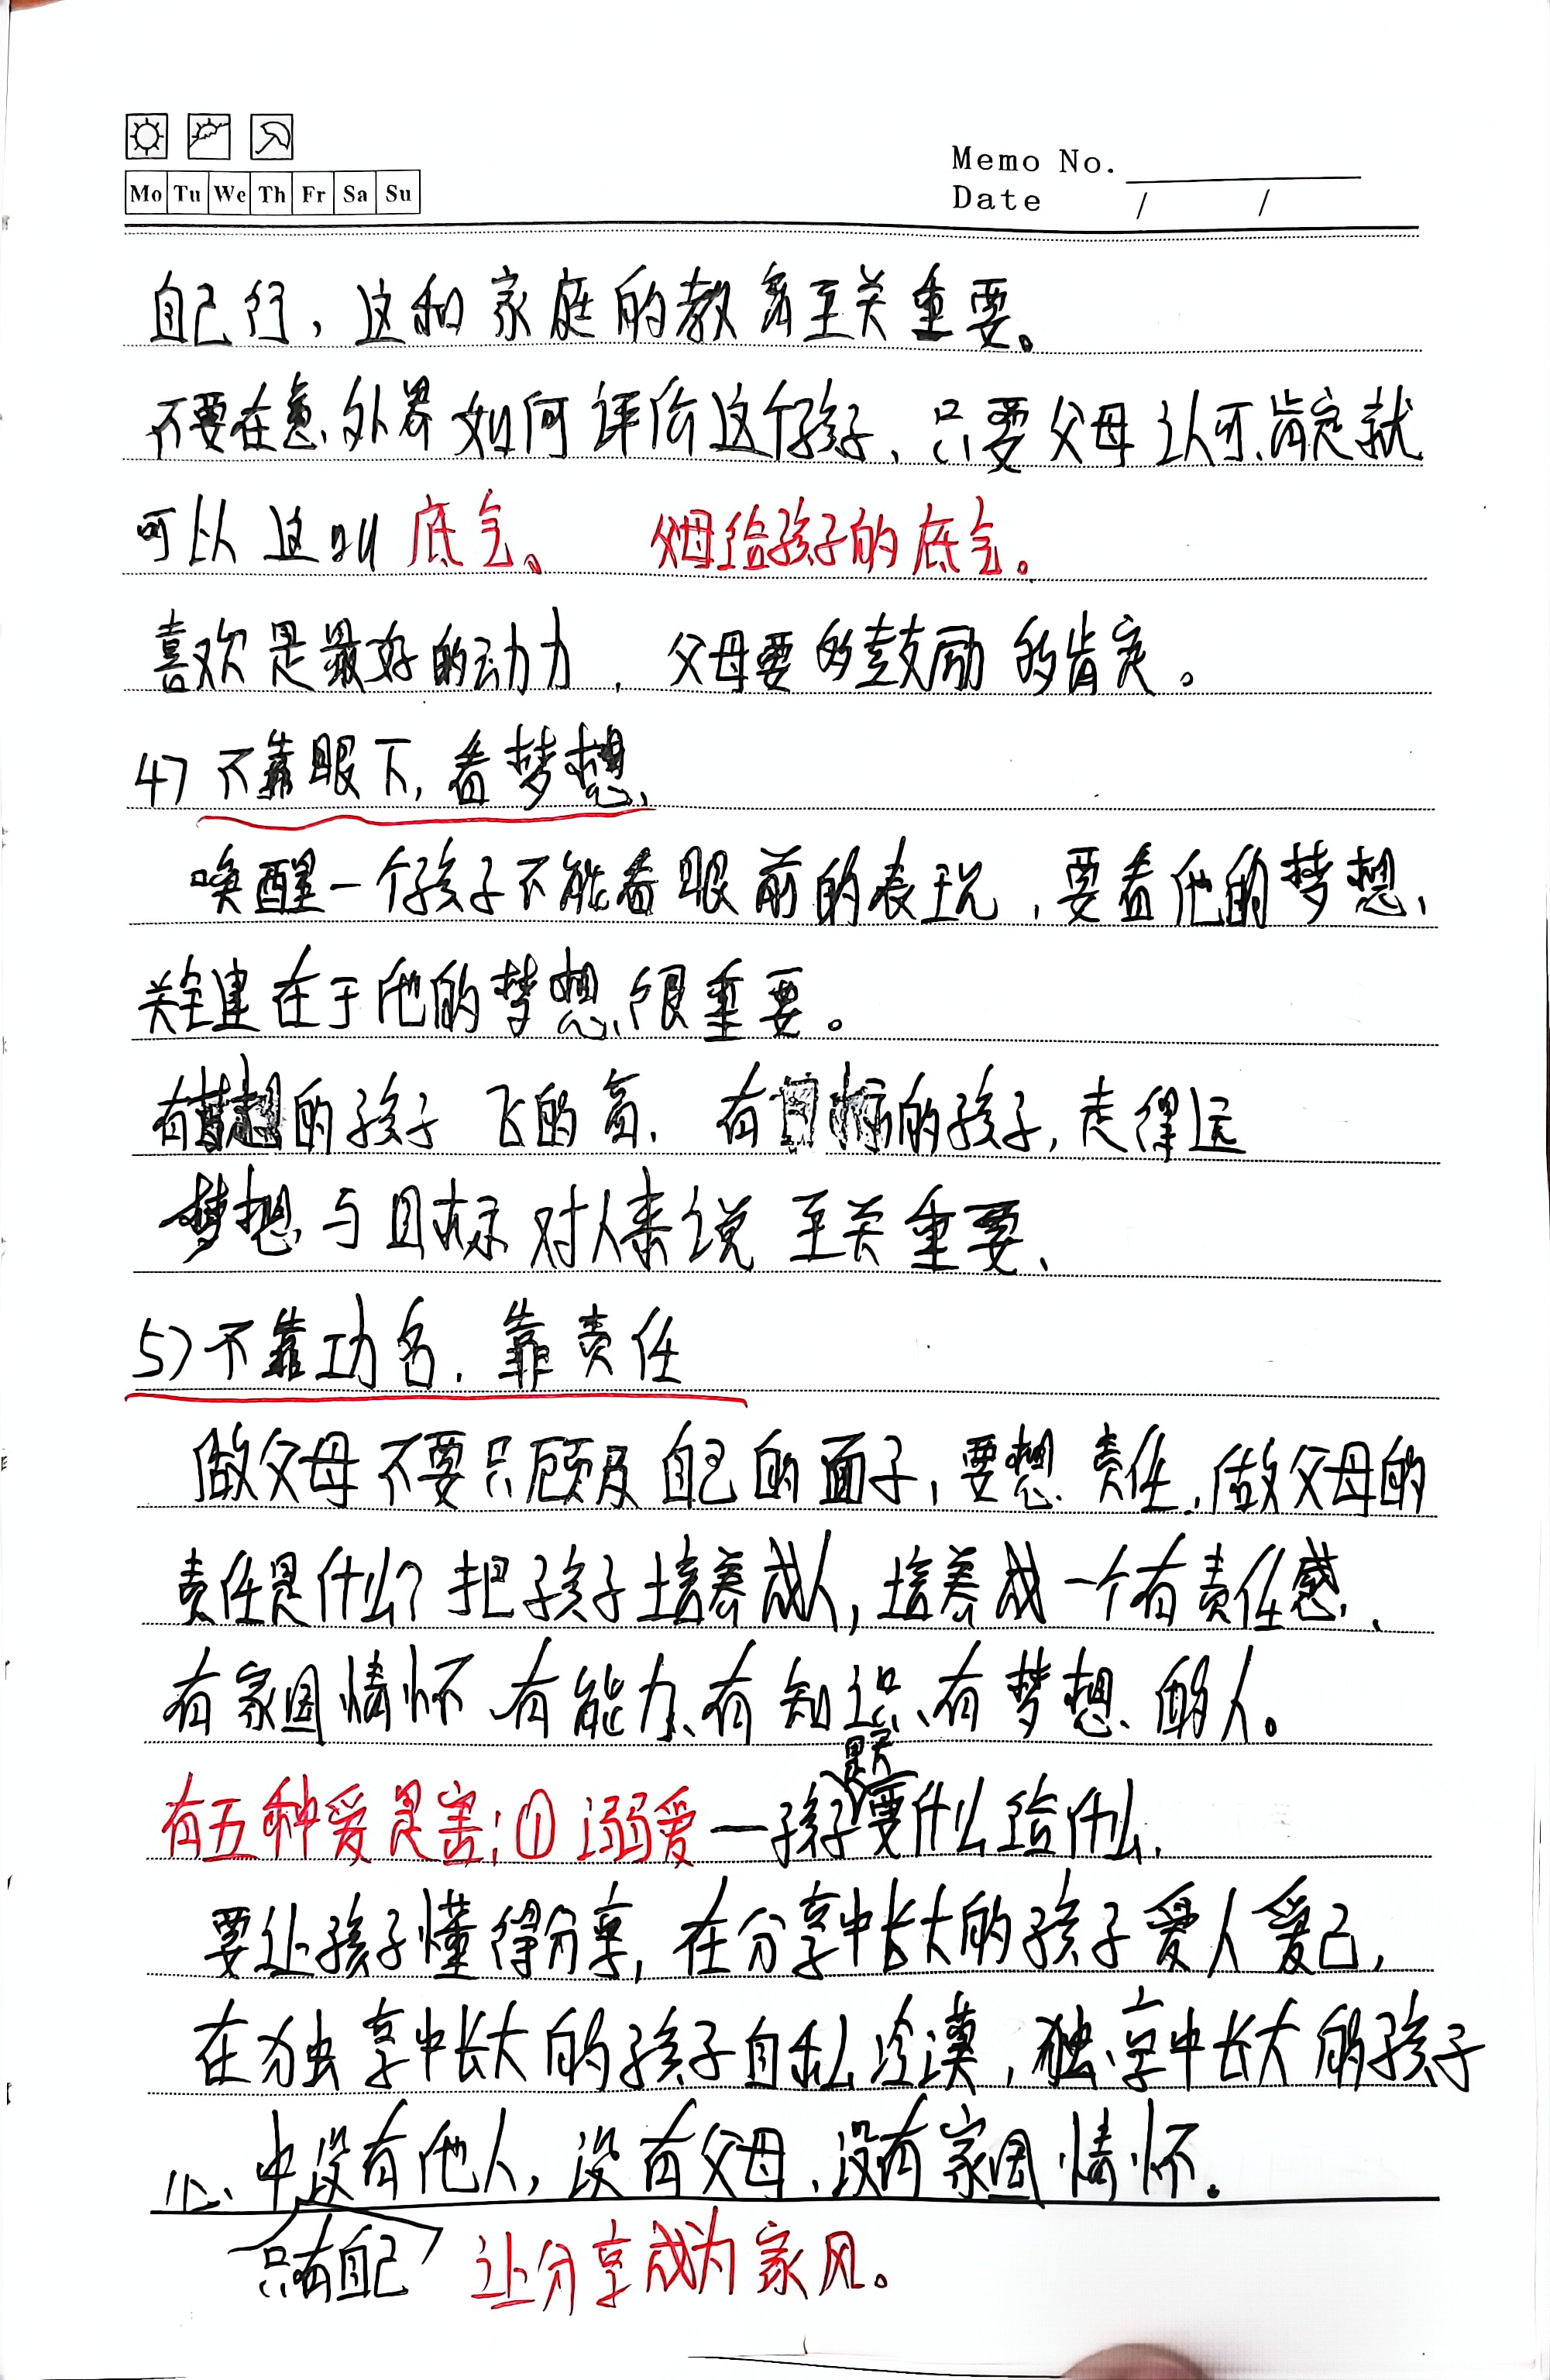 Mo Tu We Th Fr Sa Su
Memo No.
Date / /
自己行，这和家庭的教育至关重要。
不要在意外界如何评价这个孩子、只要父母认可、肯定就
可以 这叫 底气。 父母给孩子的底气。
喜欢是最好的动力，父母要的鼓励的肯定。
4) 不靠眼下，看梦想、
唤醒一个孩子不能看眼前的表现，要看他的梦想、
关键在于他的梦想很重要。
有梦想的孩子 飞的高、有目标的孩子，走得远
梦想与目标对人来说 至关重要、
5) 不靠功名．靠责任
做父母不要只顾及自己的面子，要想责任，做父母的
责任是什么？把孩子培养成人，培养成一个有责任感、
有家国情怀、有能力、有知识、有梦想、的人。
有五种爱是害；① 溺爱—孩子要什么给什么、
要让孩子懂得分享，在分享中长大的孩子爱人爱己，
在独享中长大的孩子自私冷漠，独享中长大的孩子
心中没有他人，没有父母、没有家国情怀。
只有自己 让分享成为家风。